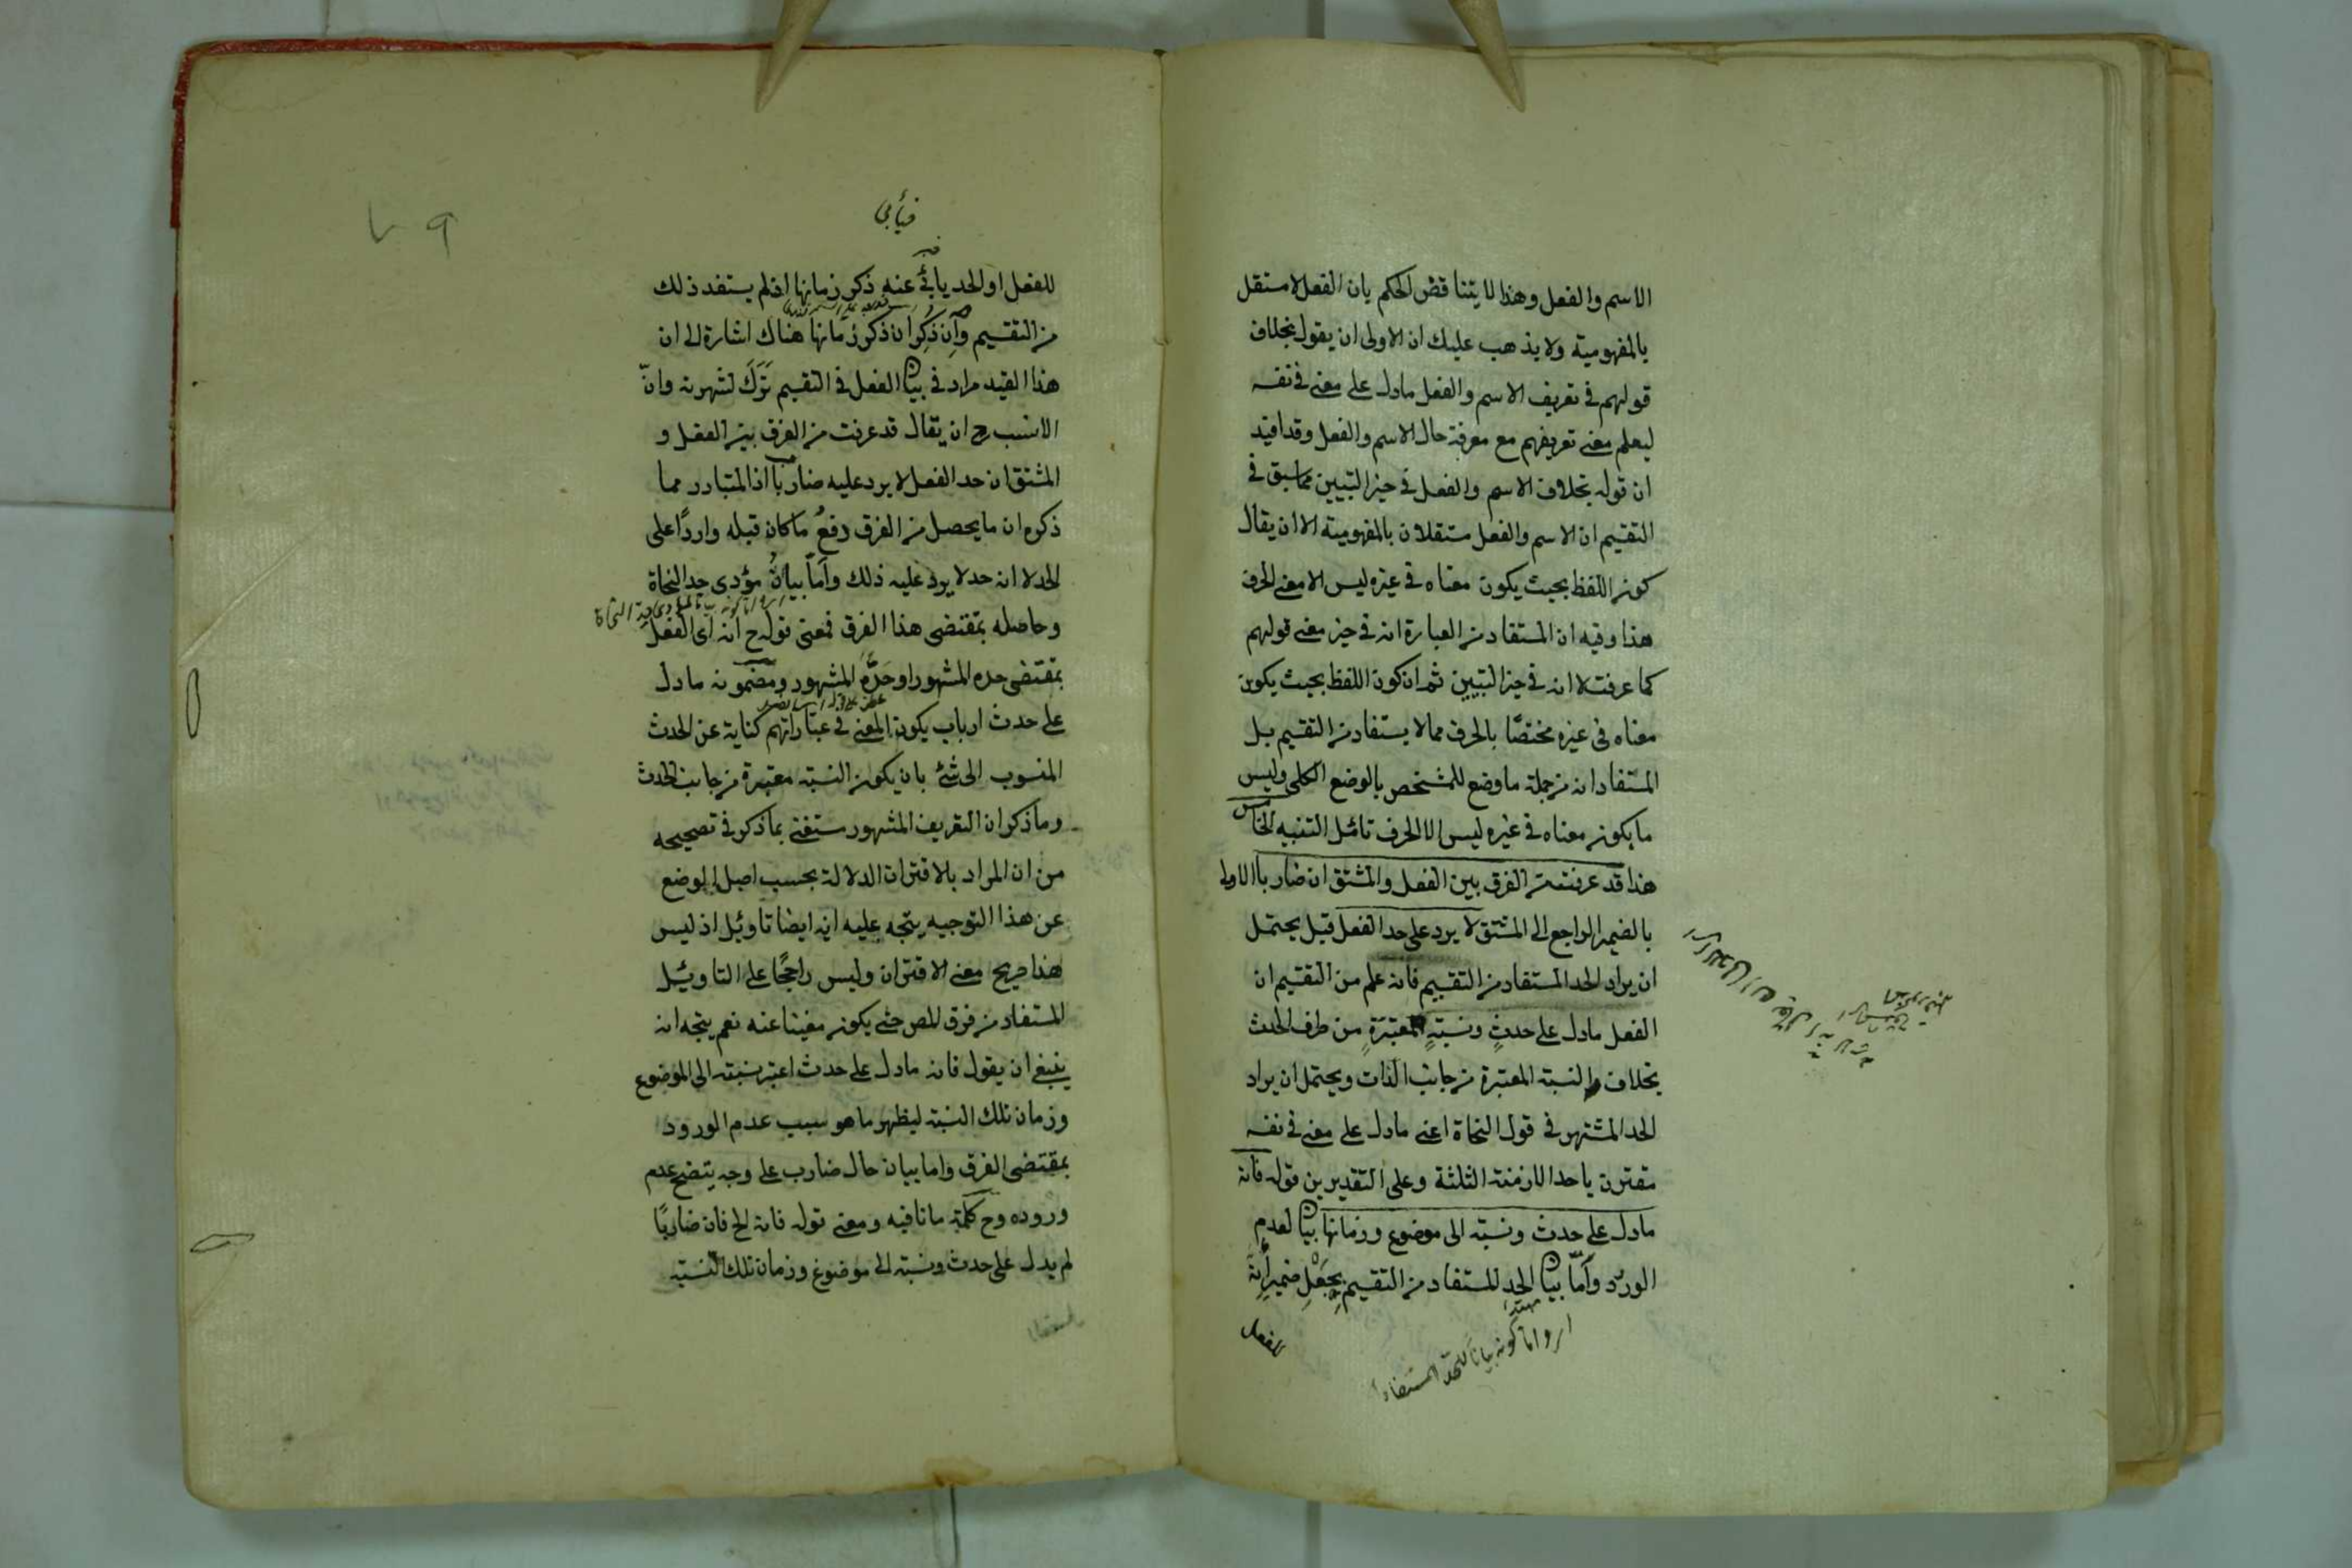 الاسم والفعل وهذا لا يتناقض الحكم بان الفعل لا مستقل
بالمفهومية ولا يذهب عليك ان الاولى ان يقول بخلاف
قولهم في تعريف الاسم والفعل مادل على معنى في نفسه
ليعلم معنى تعريفهم مع معرفة حال الاسم والفعل وقد افيد
ان قوله بخلاف الاسم والفعل في حيز التبيين مما سبق في
التقسيم ان الاسم والفعل مستقلان بالمفهومية الا ان يقال
كون اللفظ بحيث يكون معناه في غيره ليس الا معنى الحرف
هذا وفيه ان المستفاد من العبارة انه في حيز معنى قولهم
كما عرفت لا انه في حيز التبيين ثم ان كون اللفظ بحيث يكون
معناه في غيره مختصًا بالحرف مما لا يستفاد من التقسيم بل
المستفاد انه من جملة ما وضع للمشخص بالوضع الكلى وليس
ما يكون معناه في غيره ليس الا الحرف تأمل التنبيه الخامس
هذا قد عرفت من الفرق بين الفعل والمشتق ان ضاربا الاولى
بالضمير الراجع الى المشتق لا يرد على حد الفعل قيل يحتمل
ان يراد الحد المستفاد من التقسيم فانه علم من التقسيم ان
الفعل مادل على حدثٍ ونسبةٍ المعتبَرَةٍ من طرف الحدث
بخلاف والنسبة المعتبرة من جانب الذات ويحتمل ان يراد
الحد المشتهر في قول النحاة اعنى مادل على معنى في نفسه
مقترن باحد الازمنة الثلثة وعلى التقديرين قوله فانه
مادل على حدث ونسبته الى موضوع وزمانها بيان لعدم
الورد وأمّا بيان الحد المستفاد من التقسيم بجَعْلِ ضمير إنه
اى واما كونه بياناً للحد المستفاد
للفعل
فيأبى
للفعل او الحد يأبى عنه ذكر زمانها اذ لم يستفد ذلك
من التقسيم وإن ذُكِر ان ذكر زمانها هناك اشارة الى ان
هذا القيد مراد في بيان الفعل في التقسيم تَرَكَ لشهرته وانّ
الانسب ح ان يقال قد عرفت من الفرق بين الفعل و
المشتق ان حد الفعل لا يرد عليه ضارباً اذ المتبادر مما
ذكره ان ما يحصل من الفرق دفعُ ما كان قبله واردًا على
الحد لا انه حد لا يرد عليه ذلك وأمّا بيانُ مؤدى حد النحاة
وحاصله بمقتضى هذا الفرق فمعنى قوله ح انه اى الفعل
بمقتضى حده المشهور او حَدُّهُ المشهور ومضمونه مادل
على حدث ارباب يكون المعنى في عباراتهم كناية عن الحدث
المنسوب الى شئ بان يكون النسبة معتبرة من جانب الحدث
وما ذكر ان التعريف المشهور ستغنى بما ذكر في تصحيحه
من ان المراد بالاقتران الدلالة بحسب اصل الوضع
عن هذا التوجيه يتجه عليه انه ايضا تاويل اذ ليس
هذا صريح معنى الاقتران وليس راجحًا على التاويل
المستفاد من فرق المص حتى يكون مغنيا عنه نعم يتجه انه
ينبغى ان يقول فانه مادل على حدث اعتبر نسبته الى الموضوع
وزمان تلك النسبة ليظهر ما هو سبب عدم الورود
بمقتضى الفرق واما بيان حال ضارب على وجه يتضح عدم
وروده وح كلمة ما نافيه ومعنى قوله فانه الخ فان ضاربًا
لم يدل على حدث ونسبته الى موضوع وزمان تلك النسبة